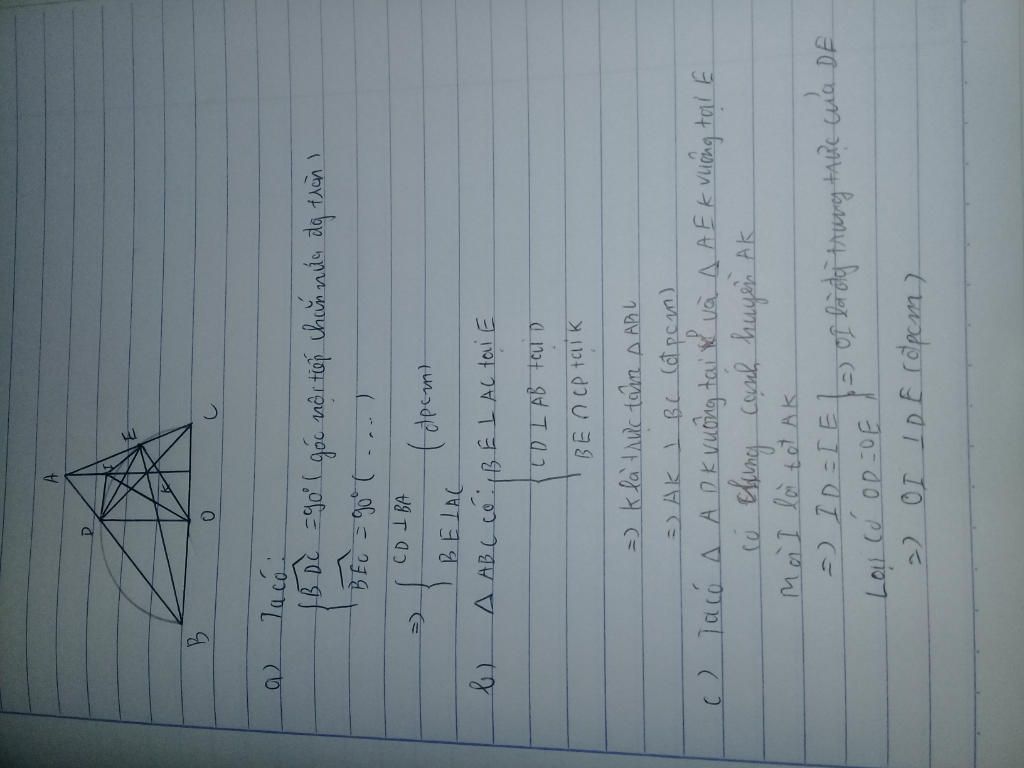 A
D
E
I
K
B
O
C
a) Ta có:
{ BDC = 90° (góc nội tiếp chắn nửa đg tròn)
BEC = 90° (....)
=> { CD ⊥ BA
BE ⊥ AC (đpcm)
b) Δ ABC có: { BE ⊥ AC tại E
CD ⊥ AB tại D
BE ∩ CD tại K
=> K là trực tâm Δ ABC
=> AK ⊥ BC (đpcm)
c) Ta có Δ ADK vuông tại và Δ AEK vuông tại E
có chung cạnh huyền AK
Mà I là tđ AK
=> ID = IE } => OI là đg trung trực của DE
Lại có OD = OE
=> OI ⊥ DE (đpcm)